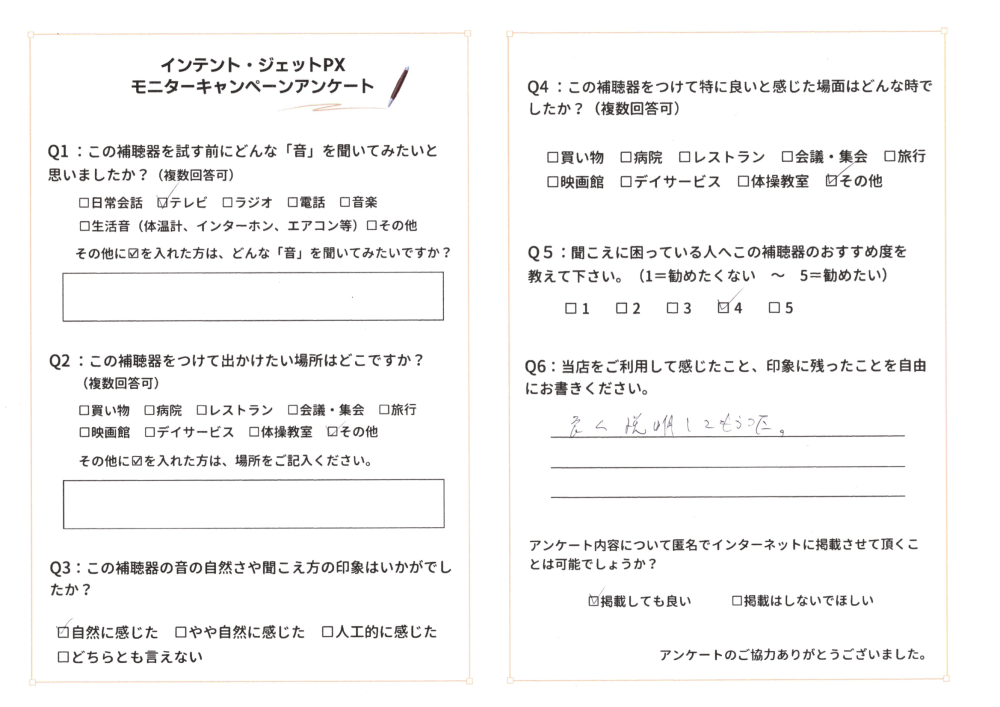 インテント・ジェットPX
モニターキャンペーンアンケート
Q1：この補聴器を試す前にどんな「音」を聞いてみたいと
思いましたか？（複数回答可）
☐日常会話 ☑テレビ ☐ラジオ ☐電話 ☐音楽
☐生活音（体温計、インターホン、エアコン等）☐その他
その他に☑を入れた方は、どんな「音」を聞いてみたいですか？
Q2：この補聴器をつけて出かけたい場所はどこですか？
（複数回答可）
☐買い物 ☐病院 ☐レストラン ☐会議・集会 ☐旅行
☐映画館 ☐デイサービス ☐体操教室 ☑その他
その他に☑を入れた方は、場所をご記入ください。
Q3：この補聴器の音の自然さや聞こえ方の印象はいかがでし
たか？
☑自然に感じた ☐やや自然に感じた ☐人工的に感じた
☐どちらとも言えない
Q4：この補聴器をつけて特に良いと感じた場面はどんな時で
したか？（複数回答可）
☐買い物 ☐病院 ☐レストラン ☐会議・集会 ☐旅行
☐映画館 ☐デイサービス ☐体操教室 ☑その他
Q５：聞こえに困っている人へこの補聴器のおすすめ度を
教えて下さい。（1＝勧めたくない　～　5＝勧めたい）
☐1 ☐2 ☐3 ☑4 ☐5
Q6：当店をご利用して感じたこと、印象に残ったことを自由
にお書きください。
良く説明してもらった。
アンケート内容について匿名でインターネットに掲載させて頂くこ
とは可能でしょうか？
☑掲載しても良い ☐掲載はしないでほしい
アンケートのご協力ありがとうございました。